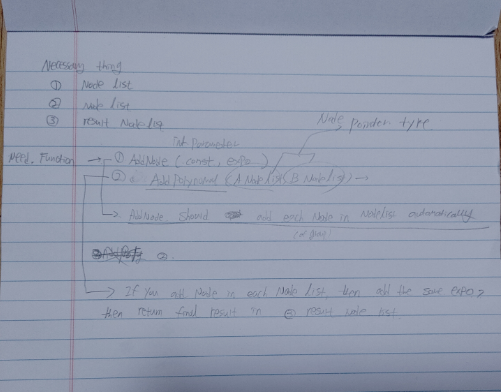 Necessary thing
① Node list
② Node list
③ result Node list
Node Pointer type
int Parameter
Need, Function → ① AddNode (const, expo)
② AddPolynomial (A Node list, B Node list) →
→ AddNode should add each Node in Nodelist automatically
②.
→ If you add Node in each Node list, then add the same expo,
then return final result in result node list